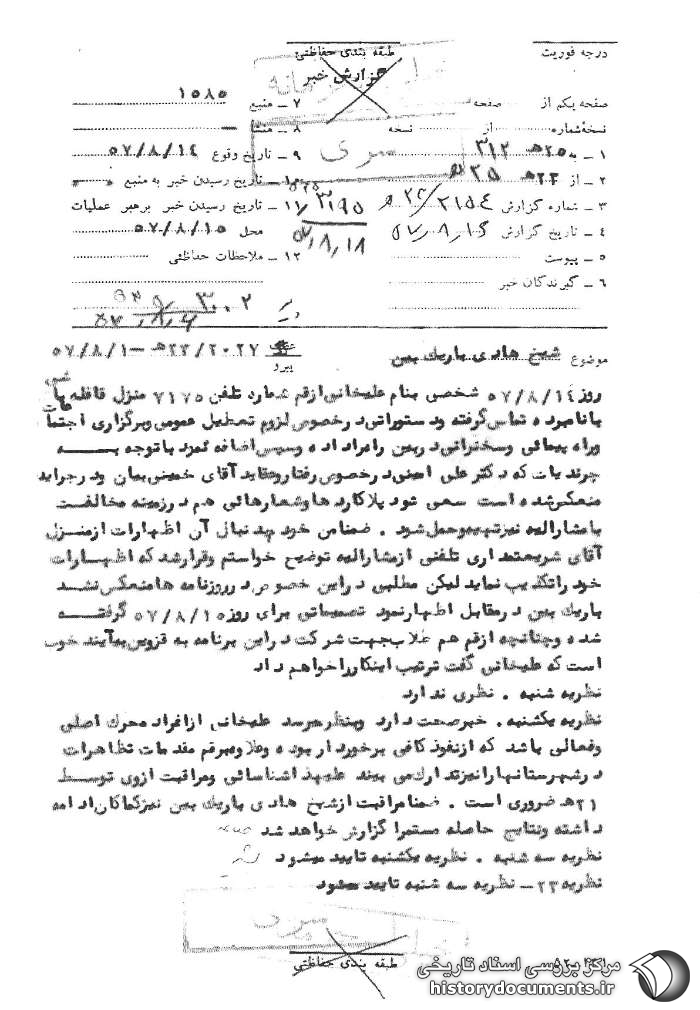 درجه فوریت
طبقه بندی حفاظتی
گزارش خبر
صفحه یکم از صفحه
۷ ـ منبع ۱۵۸۵
نسخه شماره از نسخه
۸ ـ منشأ ـ
۱ ـ به ۲۵هـ ۳۱۲
۹ ـ تاریخ وقوع ۵۷/۸/۱۴
۲ ـ از ۲۳هـ
۱۰ ـ تاریخ رسیدن خبر به منبع
۳ ـ شماره گزارش
۱۱ ـ تاریخ رسیدن خبر برهبر عملیات
۴ ـ تاریخ گزارش
محل ۵۷/۸/۱۵
۵ ـ پیوست
۱۲ ـ ملاحظات حفاظتی
۶ ـ گیرندگان خبر
سری
۵۷/۸/۱۸
موضوع شیخ هادی باریک بین
پیرو
۲۰۲۷/۲۳هـ ـ ۵۷/۸/۱۰
روز ۵۷/۸/۱۴ شخصی بنام علیخانی ازقم شماره تلفن ۷۱۷۵ منزل
بانامبرده تماس گرفته ودستوراتی درخصوص لزوم تعطیل عمومی وبرگزاری اجتماعات
وراه پیمائی وسخنرانی دربین راه داده وسپس اضافه نمود باتوجه بـــه
چرندیات که دکتر علی امینی درخصوص رفتاروعقاید آقای خمینی بیان ودرجراید
منعکس شده است سعی شود پلاکارد هاوشعارهائی هم درزمینه مخالفت
بامشارالیه نیزتهیه وحمل شود . ضمنا من خود بدنبال آن اظهارات ازمنــزل
آقای شریعتمداری تلفنی ازمشارالیه توضیح خواستم وقرارشد که اظهــارات
خود راتکذیب نماید لیکن مطلبی دراین خصوص در روزنامه هامنعکس نشــد
باریک بین درمقابل اظهارنمود تصمیماتی برای روز ۵۷/۸/۱۵ گرفتــه
شده وچنانچه ازقم هم طلاب جهت شرکت دراین برنامه به قزوین بیآیند خوب
است که علیخانی گفت ترتیب اینکارراخواهم داد
نظریه شنبه . نظری ندارد
نظریه یکشنبه . خبرصحت دارد وبنظرمیرسد علیخانی ازافراد محرک اصلی
وفعالی باشد که ازنفوذ کافی برخوردار بوده وعلاوه برقم مقدمات تظاهرات
درشهرستانهارانیزتدارک می بیند علیهذا شناسائی ومراقبت ازوی توســط
۲۱هـ ضروری است . ضمنا مراقبت ازشیخ هادی باریک بین نیزکماکان ادامه
داشته ونتایج حاصله مستمرا گزارش خواهد شد
نظریه سه شنبه . نظریه یکشنبه تایید میشود
نظریه ۲۳ ـ نظریه سه شنبه تایید میشود
سری
طبقه بندی حفاظتی
مرکز بررسی اسناد تاریخی
historydocuments.ir